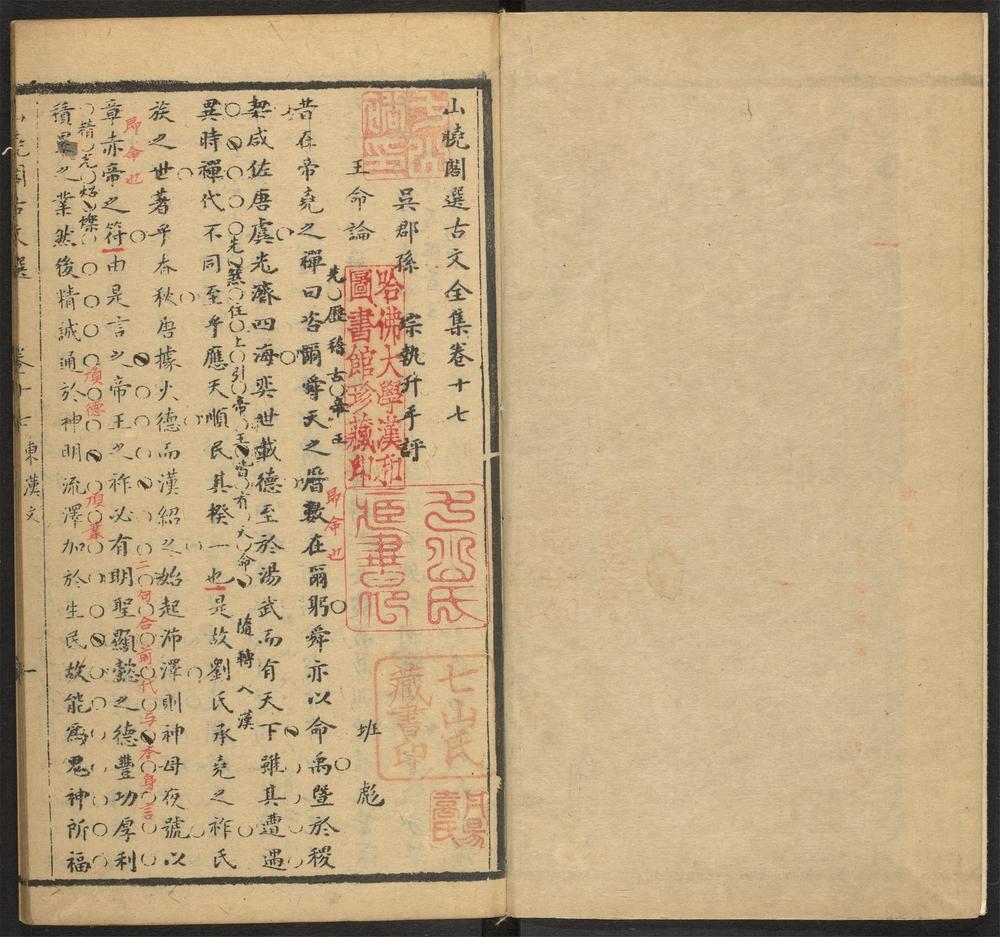 山曉閣選古文全集卷十七
吳郡孫 琮執升手評
王命論 班彪
昔在帝堯之禪曰咨爾舜天之曆數在爾躬舜亦以命禹暨於稷
契咸佐唐虞光濟四海奕世載德至於湯武而有天下雖其遭遇
異時禪代不同至乎應天順民其揆一也是故劉氏承堯之祚氏
族之世著乎春秋唐據火德而漢紹之始起沛澤則神母夜號以
章赤帝之符由是言之帝王之祚必有明聖顯懿之德豐功厚利
積累之業然後精誠通於神明流澤加於生民故能爲鬼神所福
先歷稽古帝王
即命也
先熬住上引帝王皆有天命
隨轉入漢
即命也
二句合前代与本身言
須德
須業
卷十七 東漢文
一
哈佛大學漢和
圖書館珍藏印
七山氏
藏書印